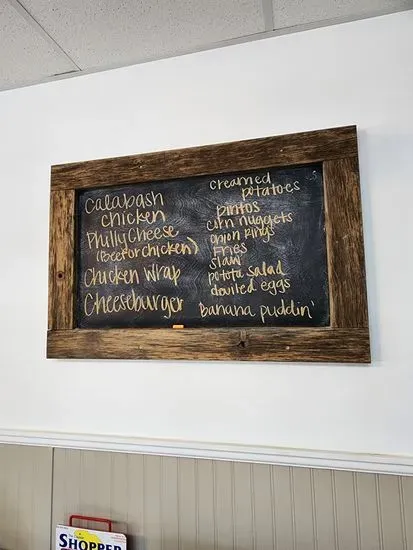 Calabash
chicken
Philly Cheese
(Beef or chicken)
Chicken Wrap
Cheeseburger
creamed
potatoes
pintos
corn nuggets
onion rings
Fries
slaw
potota salad
doviled eggs
banana puddin'
SHOPPER